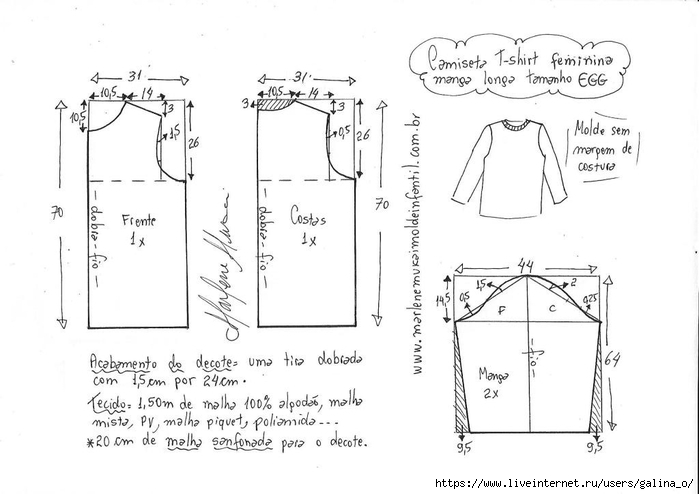 Camiseta T-shirt feminina
manga longa tamanho EGG
Molde sem
margem de
costura
31
10,5 14
3
10,5
1,5
26
70
Frente
1x
dobra-fio
31
10,5 14
3
3
0,5
26
70
Costas
1x
dobra-fio
Marlene Mukai
www.marlenemukaimoldeinfantil.com.br
44
14,5
0,5
1,5
2
0,25
F
C
fio
64
Manga
2x
9,5
9,5
Acabamento do decote= uma tira dobrada
com 1,5cm por 24cm.
Tecido= 1,50m de malha 100% algodão, malha
mista, PV, malha piquet, poliamida...
*20 cm de malha sanfonada para o decote.
https://www.liveinternet.ru/users/galina_o/